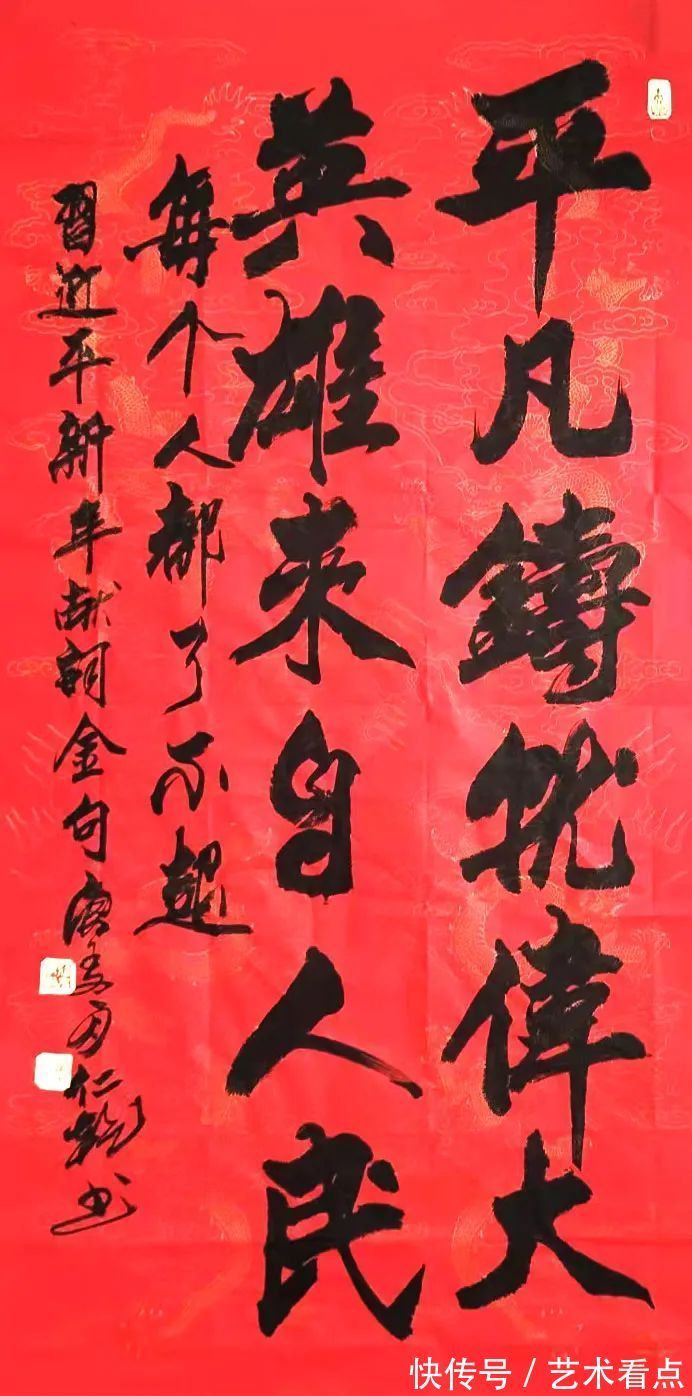 平凡鑄就偉大
英雄来自人民
每个人都了不起
習近平新年献詞金句 仁 书
快传号 / 艺术看点